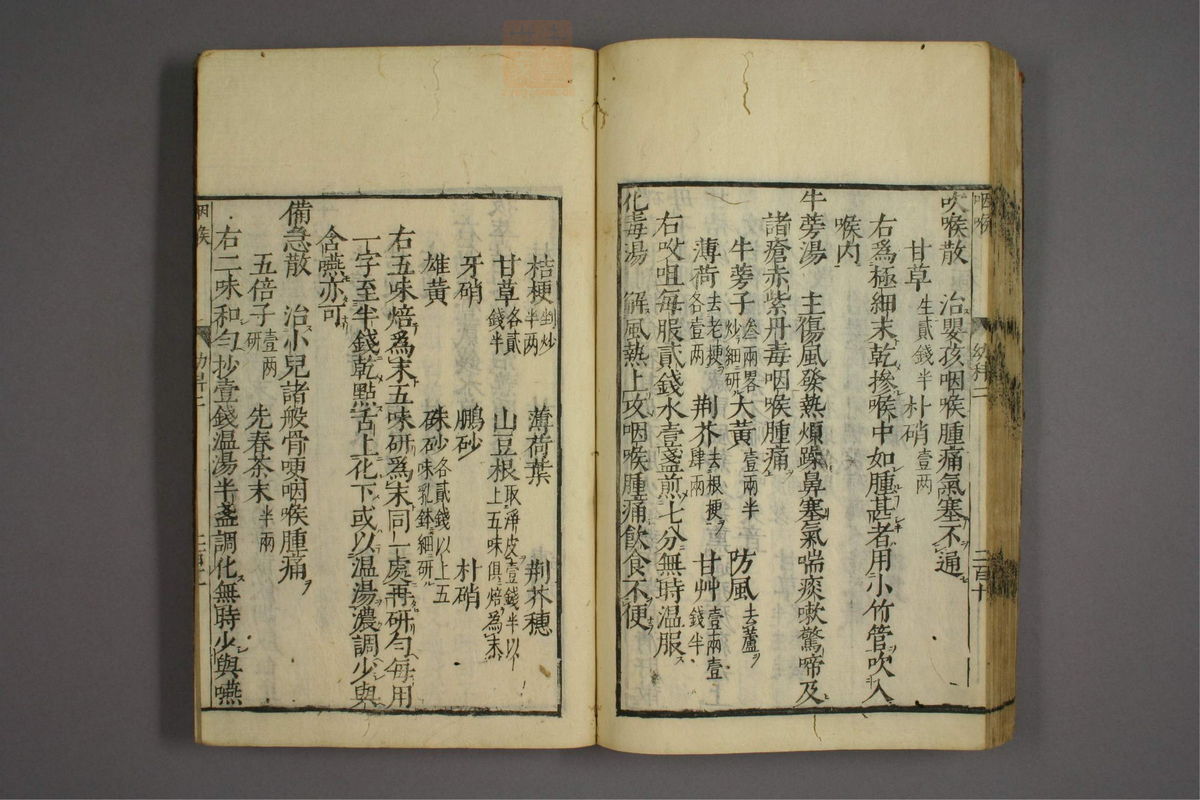 吹喉散　治嬰孩咽喉腫痛氣塞不通
甘草生貳錢半　朴硝壹两
右爲極細末乾摻喉中如腫甚者用小竹管吹入
喉内
牛蒡湯　主傷風發熱煩躁鼻塞氣喘痰嗽驚啼及
諸瘡赤紫丹毒咽喉腫痛
牛蒡子叁兩畧炒細研　大黄壹兩半　防風去蘆
薄荷去老梗各壹两　荆芥去根梗肆兩　甘艸壹兩壹錢半
右㕮咀每服貳錢水壹盞煎七分無時温服
化毒湯　解風熱上攻咽喉腫痛飲食不便
咽喉　幼科二　二百十
桔梗剉炒半两　薄荷葉　荆芥穂
甘草各貳錢半　山豆根取淨皮壹錢半以上五味俱焙為末
牙硝　鵬砂　朴硝
雄黄　硃砂各貳錢以上五味乳鉢細研
右五味焙爲末五味研爲末同一處再研勻每用
一字至半錢乾點舌上化下或以温湯濃調少與
含嚥亦可
備急散　治小兒諸般骨哽咽喉腫痛
五倍子壹两研　先春茶末半兩
右二味和勻抄壹錢温湯半盞調化無時少與嚥
咽喉　幼科二